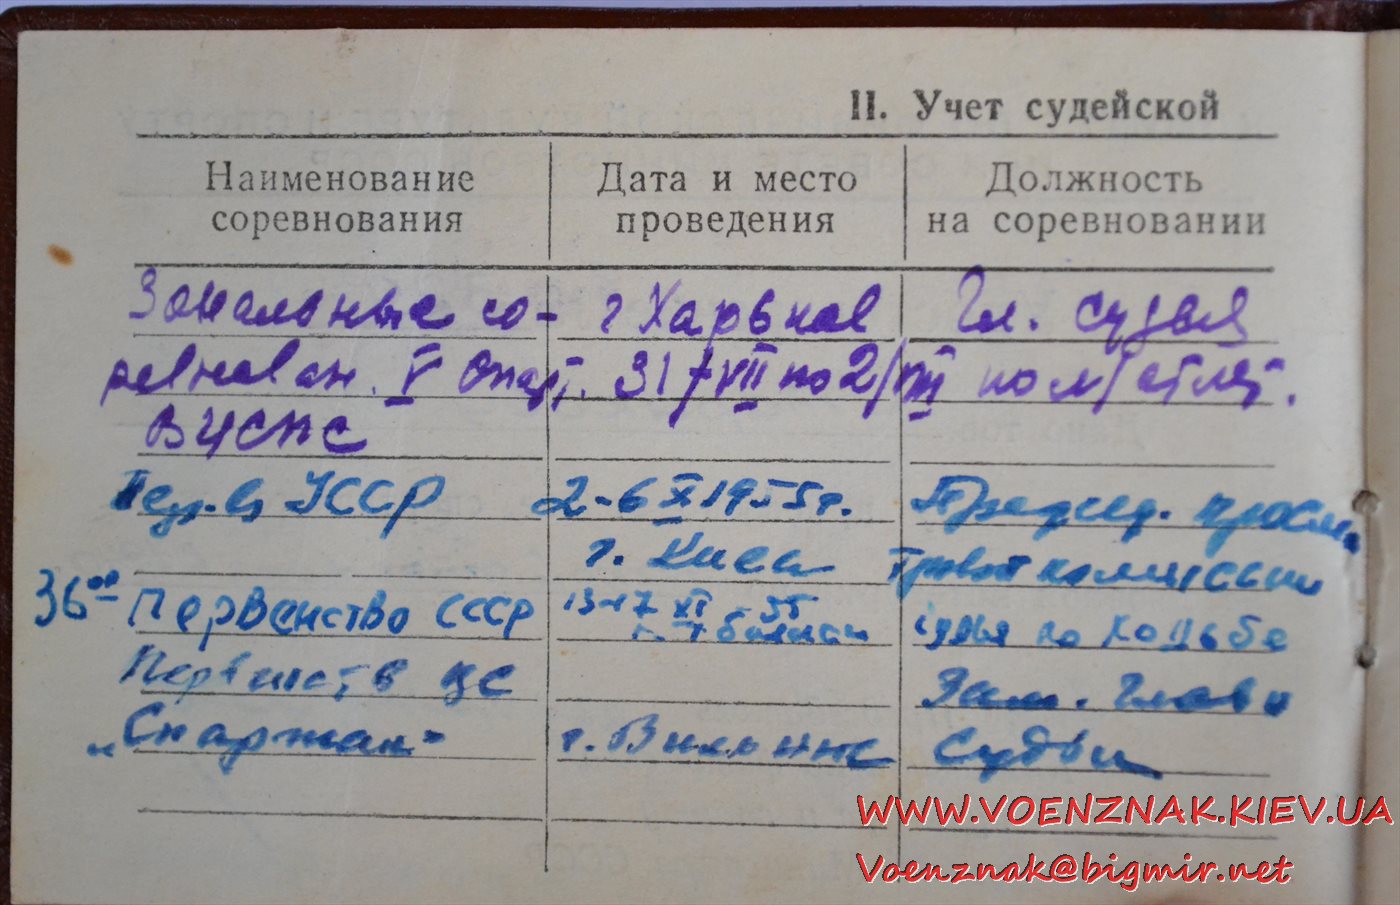 II. Учет судейской
Наименование соревнования
Дата и место проведения
Должность на соревновании
Зональные со- г Харьков Гл. судья
ревнован. V Спарт. 31/VII по 2/VIII по л/атлет.
ВЦСПС
УССР 2-6 X 1955г. Председ.
г. Киев комиссии
36 Первенство СССР 13-17 XI 55 судья по ходьбе
г. Тбилиси
Первенств ЦС Зам. Главн
„Спартак" г. Вильнюс Судьи
WWW.VOENZNAK.KIEV.UA
Voenznak@bigmir.net